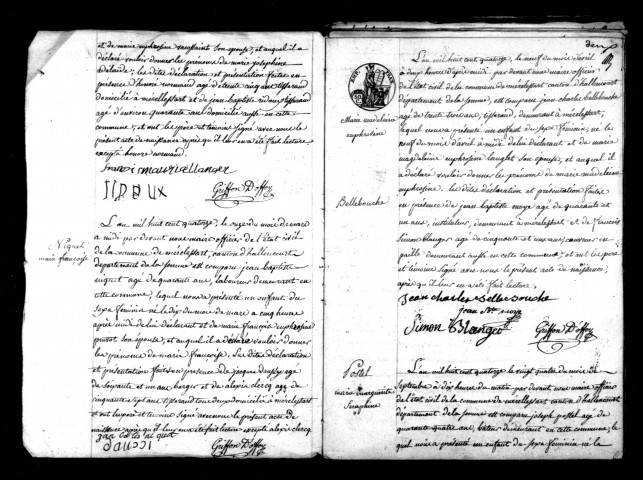 et de marie euphrosine
déclaré vouloir donner les prénoms de marie josephine
les dites déclaration et présentation faites en
domicilié à mérélessart et de jean baptiste
agé d'environ quarante ans domicilié aussi en cette
commune, et ont les père et témoins signé avec nous le
présent acte de naissance après qu'il leur en a été fait lecture
Griffon D'offoy
Niquet
marie françoise
L'an mil huit cent quatorze, le onze du mois de mars
à midi par devant nous maire officier de l'état civil
de la commune de mérélessart, canton d'hallencourt
département de la somme est comparu jean baptiste
niquet agé de quarante ans, laboureur demeurant en
cette commune, lequel nous a présenté un enfant du
sexe féminin né le dix du mois de mars à cinq heures
après midi de lui déclarant et de marie françoise euphrosine
son épouse, et auquel il a déclaré vouloir donner
les prénoms de marie françoise. Les dite déclaration
et présentation faites en présence de jacque
de soixante et un ans berger et de alexis clercq agé de
cinquante sept ans, tisserand tous deux domiciliés à mérélessart
et ont les père et témoin signé avec nous le présent acte de
naissance après qu'il leur en a été fait lecture excepté alexis clercq
Griffon D'offoy
deux
Marie madelaine
euphrosine
Bellebouche
L'an mil huit cent quatorze, le neuf du mois d'avril
à deux heures d'après midi par devant nous maire officier
de l'état civil de la commune de mérélessart canton d'hallencourt
département de la somme, est comparu jean charles Bellebouche
agé de trente trois ans, tisserand, demeurant à mérélessart,
lequel nous a présenté un enfant du sexe féminin, né le
neuf du mois d'avril à midi de lui déclarant et de marie
magdelaine euphrosine langlet son épouse, et auquel il
a déclaré vouloir donner les prénoms de marie madelaine
euphrosine. les dite déclaration et présentation faites
en présence de jean baptiste moye agé de quarante et
un ans, instituteur, demeurant à mérélessart et de françois
Simon blanger agé de cinquante et un ans, couvreur en
paille demeurant aussi en cette commune, et ont les père
et témoins signé avec nous le présent acte de naissance,
après qu'il leur en a été fait lecture.
Jean charles Bellebouche
Simon Blanger
Griffon D'offoy
Postel
marie marguerite
Seraphine
L'an mil huit cent quatorze le vingt quatre du mois de
Septembre à dix heures du matin par devant nous maire officier
de l'état civil de la commune de mérélessart canton d'hallencourt
département de la somme est comparu joseph postel agé de
quarante quatre ans, demeurant en cette commune, le
quel nous a présenté un enfant du sexe féminin né le